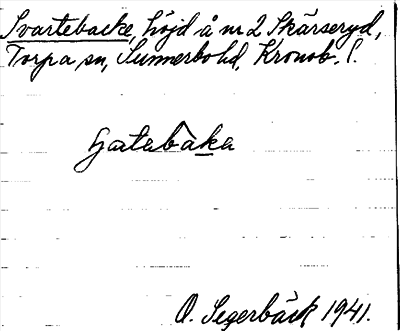 Svartebacke, höjd å nr 2 Skärseryd,
Torpa sn, Sunnerbo hd, Kronob. l.
O. Segerbäck 1941.